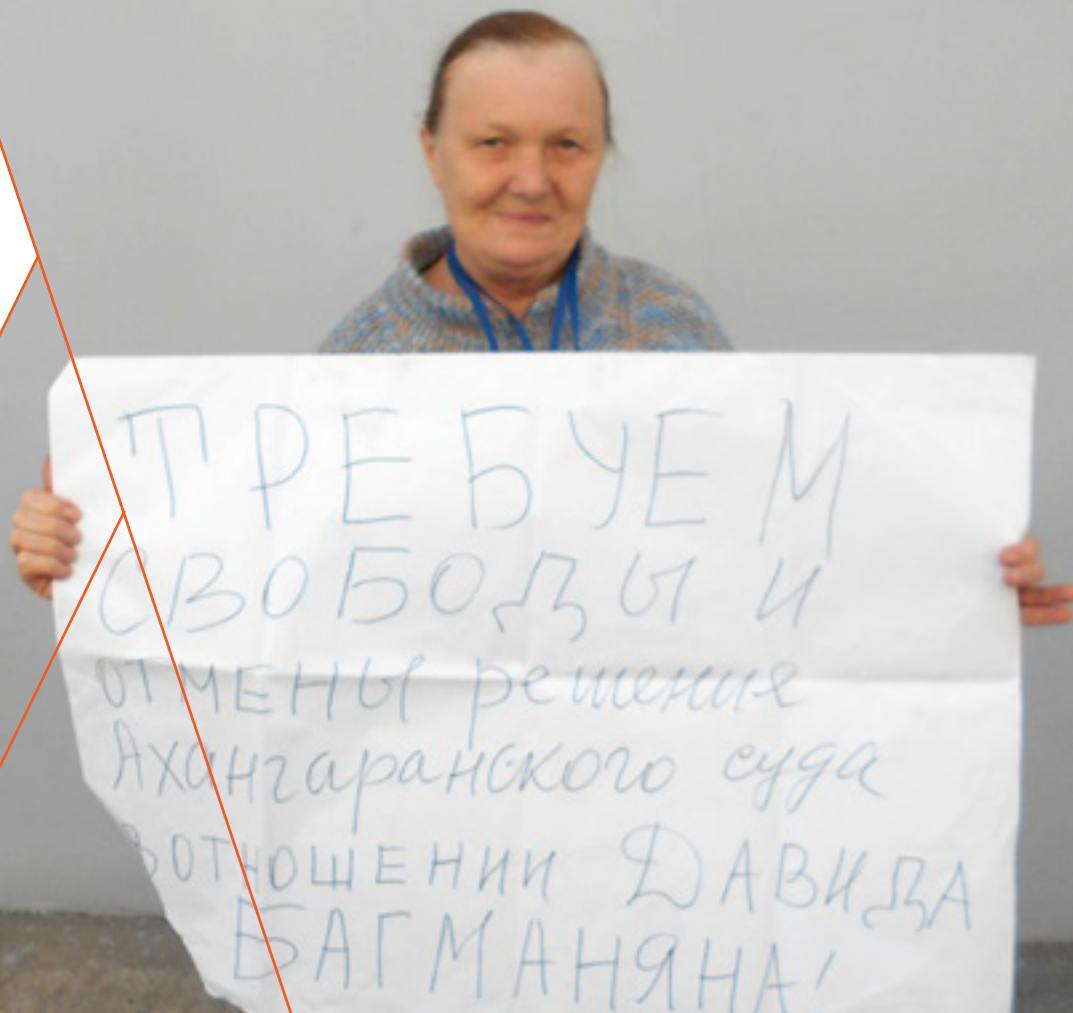 ТРЕБУЕМ
СВОБОДЫ И
ОТМЕНЫ решения
Ахангаранского суда
В ОТНОШЕНИИ ДАВИДА
БАГМАНЯНА!